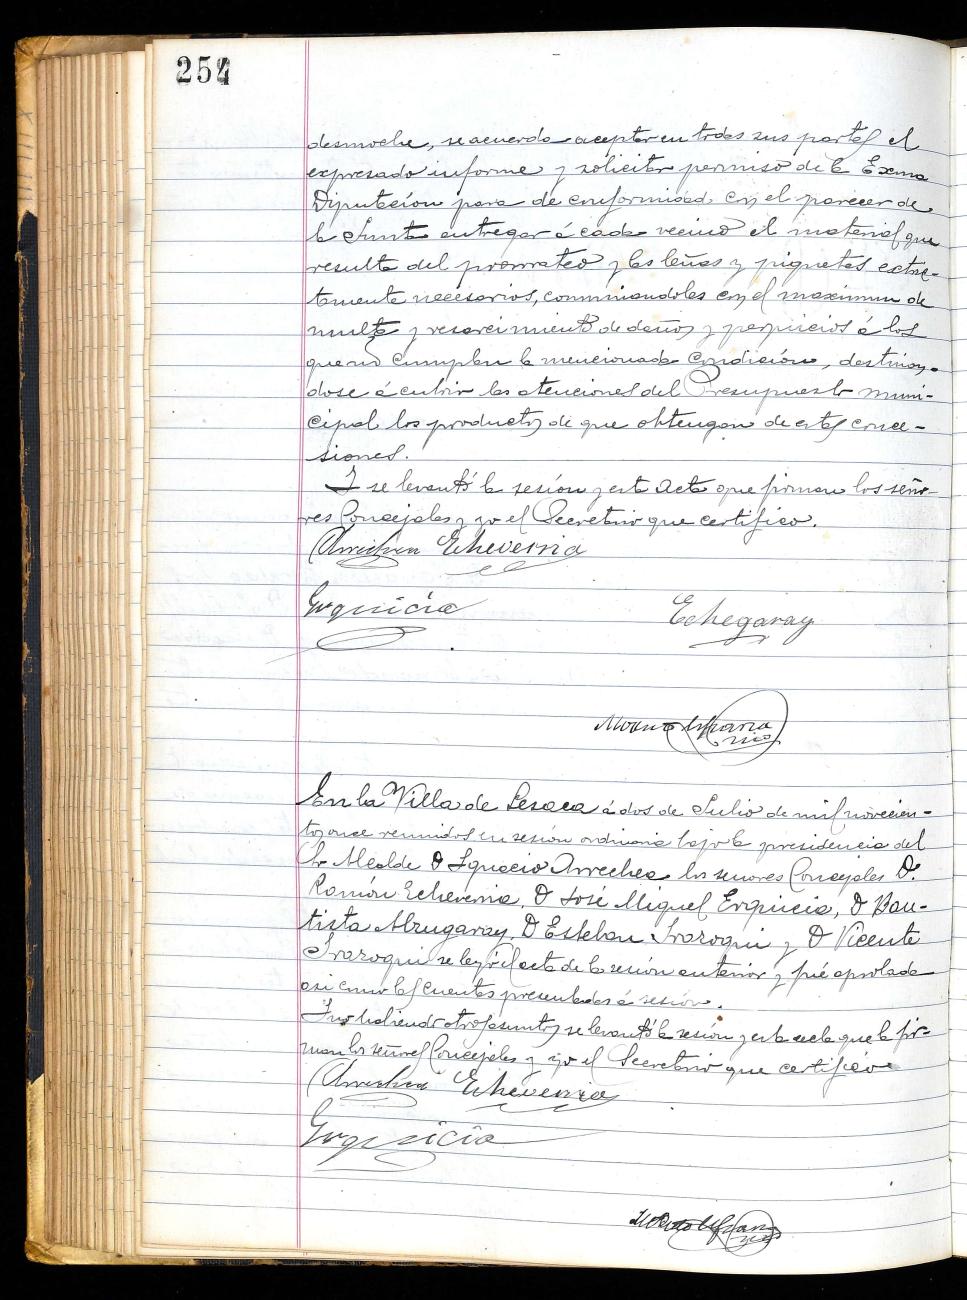 252
desmoche, se acuerda aceptar en todas sus partes el
expresado informe y solicitar permiso de la Exma
Diputación para de conformidad con el parecer de
la Junta entregar á cada vecino el material que
resulta del prorrateo y las leñas y piquetes estric-
tamente necesarios, conminandoles con el maximun de
multa y resarcimiento de daños y perjuicios á los
que no cumplan la mencionada condición, destinan-
dose á cubrir las atenciones del Presupuesto muni-
cipal los productos de que obtengan de estas conce-
siones.
Y se levantó la sesión y esta acta que firman los seño-
res Concejales y yo el Secretario que certifico.
Arrechea Echeverria
Erquicia Echegaray
En la Villa de Lesaca á dos de Julio de mil novecien-
tos once reunidos en sesión ordinaria bajo la presidencia del
Sr Alcalde D Ignacio Arrechea los señores Concejales D.
Ramón Echeverria, D José Miguel Erquicia, D Bau-
tista Alzugaray D Esteban Irazoqui y D Vicente
Irazoqui se leyó el acta de la sesión anterior y fué aprobada
asi como las cuentas presentadas á sesión.
Y no habiendo otros asuntos se levantó la sesión y esta acta que la fir-
man los señores Concejales y yo el Secretario que certifico
Arrechea Echeverria
Erquicia